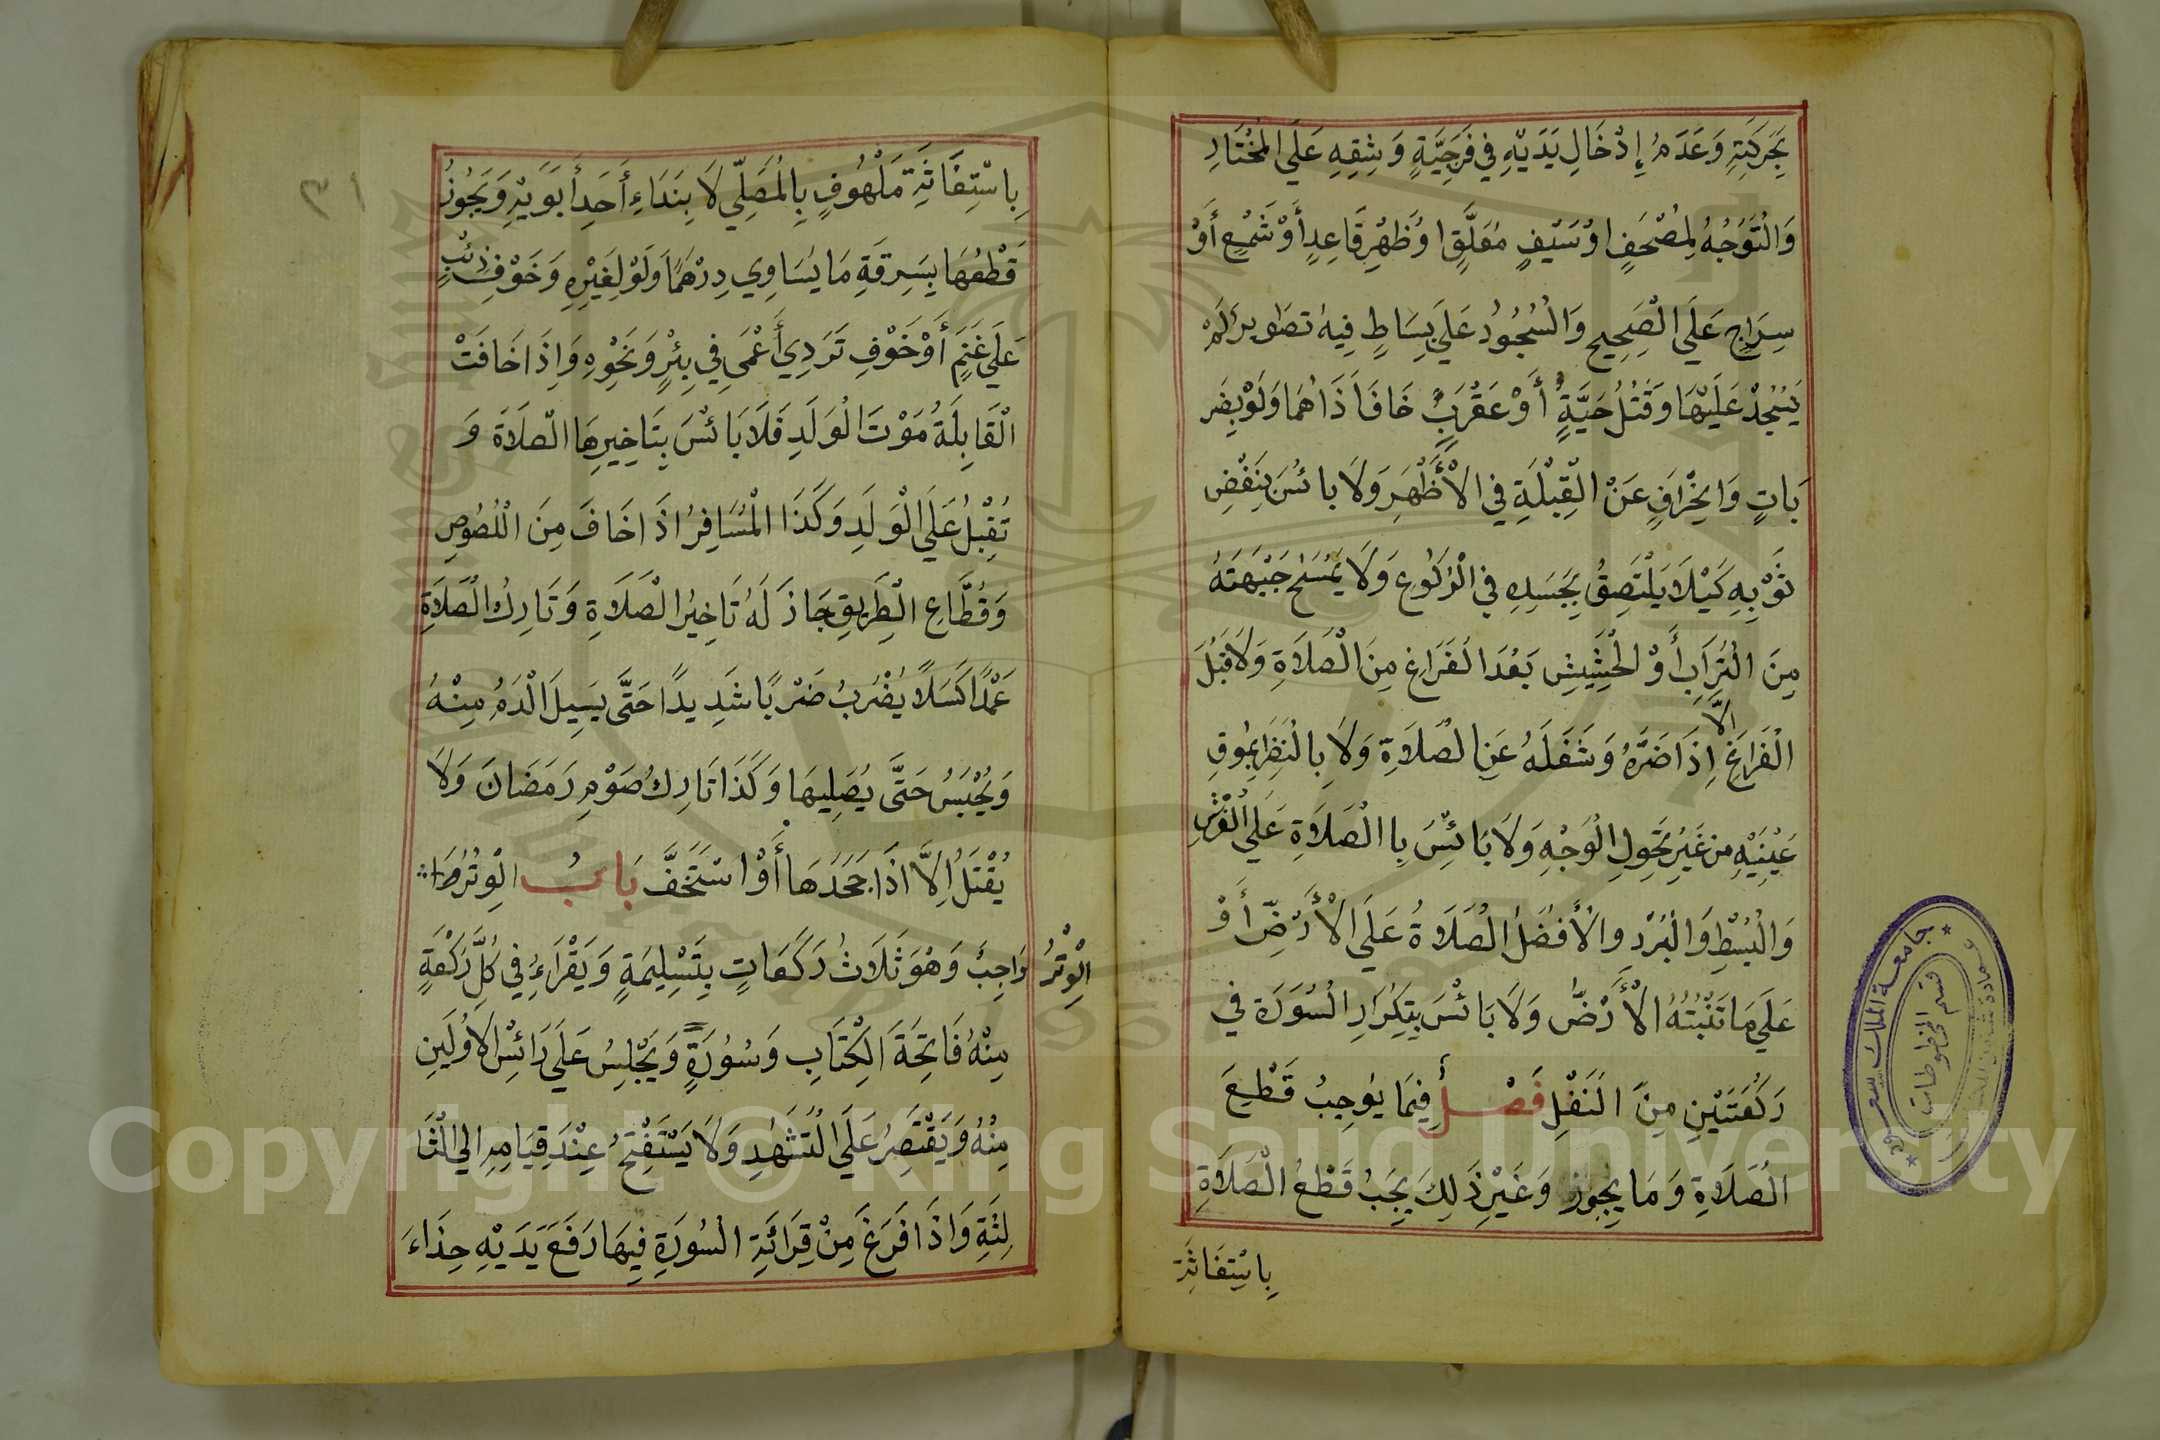 بِحَرَكَتِهِ وَعَدَمُ إِدْخَالِ يَدَيْهِ فِي فَرَجِيَّةٍ وَشِقِهِ عَلَى الْمُخْتَارِ
وَالْتَوَجُهُ لِمُصْحَفٍ اوْسَيْفٍ مُعَلَّقٍ اوْظَهْرِ قَاعِدٍ أَوْ شَمْعٍ أَوْ
سِرَاجٍ عَلَى الْصَحِيحِ وَالْسُجُودُ عَلَى بِسَاطٍ فِيهُ تصَاوِيرُ لَمْ
يَسْجُدْ عَلَيْهَا وَقَتْلُ حَيَّةٍ أَوْ عَقْرَبٍ خَافَ أَذَاهُمَا وَلَوْ بِضَر
بَاتٍ وَانْحِرَافٍ عَنْ الْقِبْلَةِ فِي الْأَظْهَرِ وَلَا بائسَ بِنَفْضِ
ثَوْبِهِ كَيْلَا يَلْتَصِقُ بِجَسَدِهِ فِي الْرُكُوعِ وَلَا يَمْسَحُ جَبْهَتَهُ
مِنَ الْتُرَابِ أَوْ الْحَشِيشِ بَعْدَ الْفَرَاغِ مِنَ الْصَلَاةِ وَلَا قَبْلَ
الْفَرَاغِ الَّا اِذَا ضَرَّهُ وَشَغَلَهُ عَنِ الصَلَاةِ وَلَا بِالْنَظَرِ بِمُوقِ
عَيْنَيْهِ مِن غَيْرِ تَحْوِلِ الْوَجْهِ وَلَا بَائْسَ بِا الْصَلَاةِ عَلَى الْفُرْشِ
وَالْبُسْطِ وَالْبُرْدِ وَالْأَفْضَلُ الْصَلَاةُ عَلَى الْأَرْضِ أَوْ
عَلَى مَا تَنْبُتُهُ الْأَرْضُ وَلَا بَائْسَ بِتِكْرَارِ الْسُورَةِ فِي
رَكْعَتَيْنِ مِنَ الْنَفْلِ فَصْلٌ فِيمَا يُوجِبُ قَطْعَ
الْصَلَاةِ وَمَا يجُوز وَغَيْرِذَلِكَ يَجِبُ قَطْعُ الْصَلَاةِ
بِاسْتِغَاثَةِ
بِاسْتِغَاثَةِ مَلْهُوفٍ بِالْمُصَلِّي لَا بِنَدَاءِ أَحَدِ أَبَوَيْهِ وَيَجُوزُ
قَطْعُهَا بِسَرِقَةِ مَا يُسَاوِي دِرْهَمًا وَلَوْ لِغَيْرِهِ وَخَوْفِ ذِئْبٍ
عَلَى غَنَمٍ أَوْ خَوْفِ تَرَدِي أَعْمَى فِي بِئْرٍ وَنَحْوِهِ وَاِذَا خَافَتْ
الْقَابِلَةُ مَوْتَ الْوَلَدِ فَلَا بَائْسَ بِتَاخِيرِهَا الصَلَاةَ وَ
تُقْبِلُ عَلَى الْوَلَدِ وَكَذَا الْمُسَافِرُ اذَا خَافَ مِنَ اللُصُوصِ
وَقُطَّاعِ الْطَرِيقِ جَازَ لَهُ تَاخِيرُ الْصَلَاةِ وَتَارِكُ الْصَلَاةِ
عَمْدًا كَسَلًا يُضْرَبُ ضَرْبًا شَدِيدًا حَتَّى يَسِيلَ الْدَمُ مِنْهُ
وَيُحْبَسُ حَتَّى يُصَلِيهَا وَكَذَا تَارِكُ صَوْمِ رَمَضَانَ وَلَا
يُقْتَلُ اِلَّا اذَا جَحَدَهَا أَوْ اسْتَخَفَّ بَابُ الْوِتْرِ
الْوِتْرُ وَاجِبٌ وَهُوَ ثَلَاثُ رَكَعَاتٍ بِتَسْلِيمَةٍ وَيَقْرَاءُ فِي كُلِّ رَكْعَةٍ
مِنْهُ فَاتِحَةَ الْكِتَابِ وَسُورَةً وَيَجْلِسُ عَلَى رَائْسِ الاُولَيَنِ
مِنْهُ وَيَقْتَصِرُ عَلَى الْتَشَهُدِ وَلَا يَسْتَفْتِحُ عِنْدَ قِيَامِهِ الِي الْثَا
لِثَةِ وَاذَا فَرَغَ مِنْ قِرَائَةِ الْسُورَةِ فِيهَا رَفَعَ يَدَيْهِ حِذَاءَ
٣١
جامعة الملك سعود
قسم المخطوطات
Copyright © King Saud University
1957